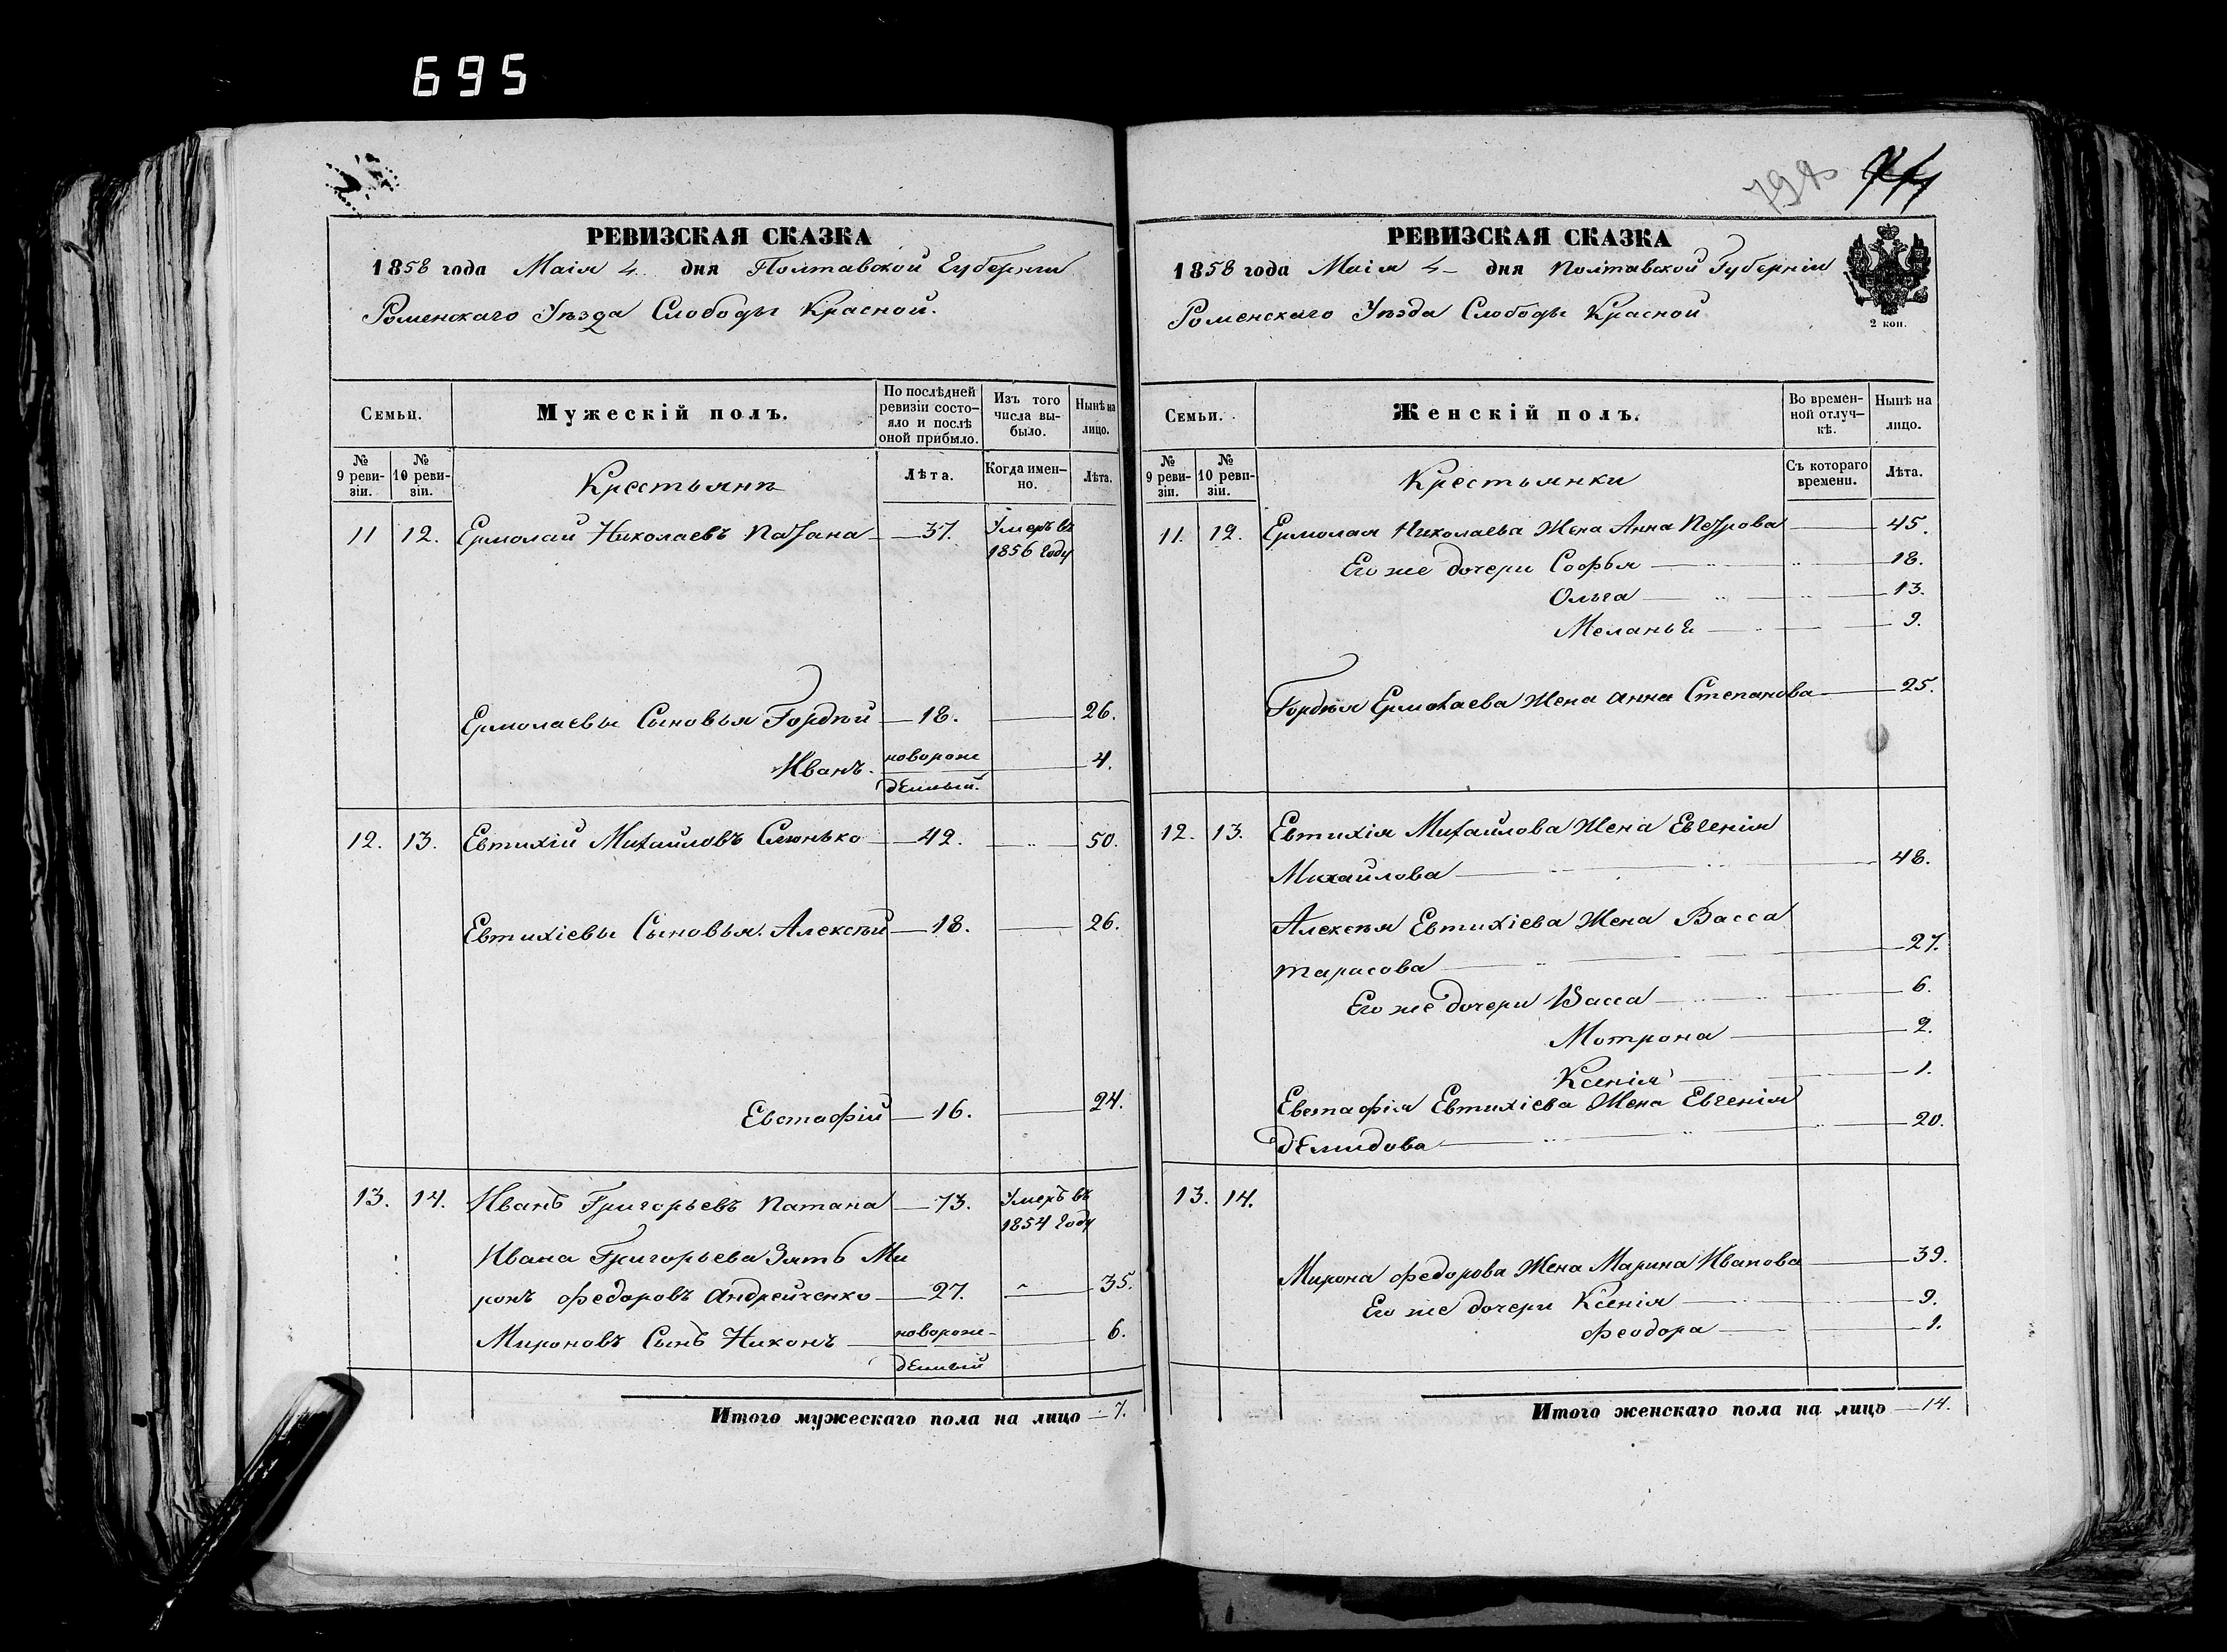 695
РЕВИЗСКАЯ СКАЗКА
1858 года Маія 4 дня Полтавской Губерніи
Роменскаго Уѣзда Слободы Красной.
Семьи.
Мужескій полъ.
По послѣдней ревизіи состояло и послѣ оной прибыло.
Изъ того числа выбыло.
Нынѣ на лицо.
№ 9 ревизіи.
№ 10 ревизіи.
Крестьянъ
Лѣта.
Когда именно.
Лѣта.
11 12. Ермолай Николаевъ Патана 37. Умеръ въ
1856 году
Ермолаевы Сыновья Гордѣй 18. 26.
Иванъ. новорож 4.
денный.
12. 13. Евтихій Михайловъ Слюнько 42. 50.
Евтихіевы Сыновья. Алексѣй 18. 26.
Евстафій 16. 24.
13. 14. Иванъ Григорьевъ Патана 73. Умеръ въ
1854 году
Ивана Григорьева Зять Ми
ронъ Федоровъ Андрейченко 27. 35.
Мироновъ Сынъ Никонъ новорож- 6.
денный
Итого мужескаго пола на лицо 7.
РЕВИЗСКАЯ СКАЗКА
1858 года Маія 4 дня Полтавской Губерніи
Роменскаго Уѣзда Слободы Красной
2 коп.
Семьи.
Женскій полъ.
Во временной отлучкѣ.
Нынѣ на лицо.
№ 9 ревизіи.
№ 10 ревизіи.
Крестьянки
Съ котораго времени.
Лѣта.
11. 12. Ермолая Николаева Жена Анна Петрова 45.
Его же дочери Софья 18.
Ольга 13.
Меланья 9.
Гордѣя Ермолаева Жена Анна Степанова 25.
12. 13. Евтихія Михайлова Жена Евгенія
Михайлова 48.
Алексѣя Евтихіева Жена Васса
Тарасова 27.
Его же дочери Васса 6.
Мотрона 2.
Ксенія 1.
Евстафія Евтихіева Жена Евгенія
Демидова 20.
13. 14.
Мирона Федорова Жена Марина Иванова 39.
Его же дочери Ксенія 9.
Феодора 1.
Итого женскаго пола на лицо 14.